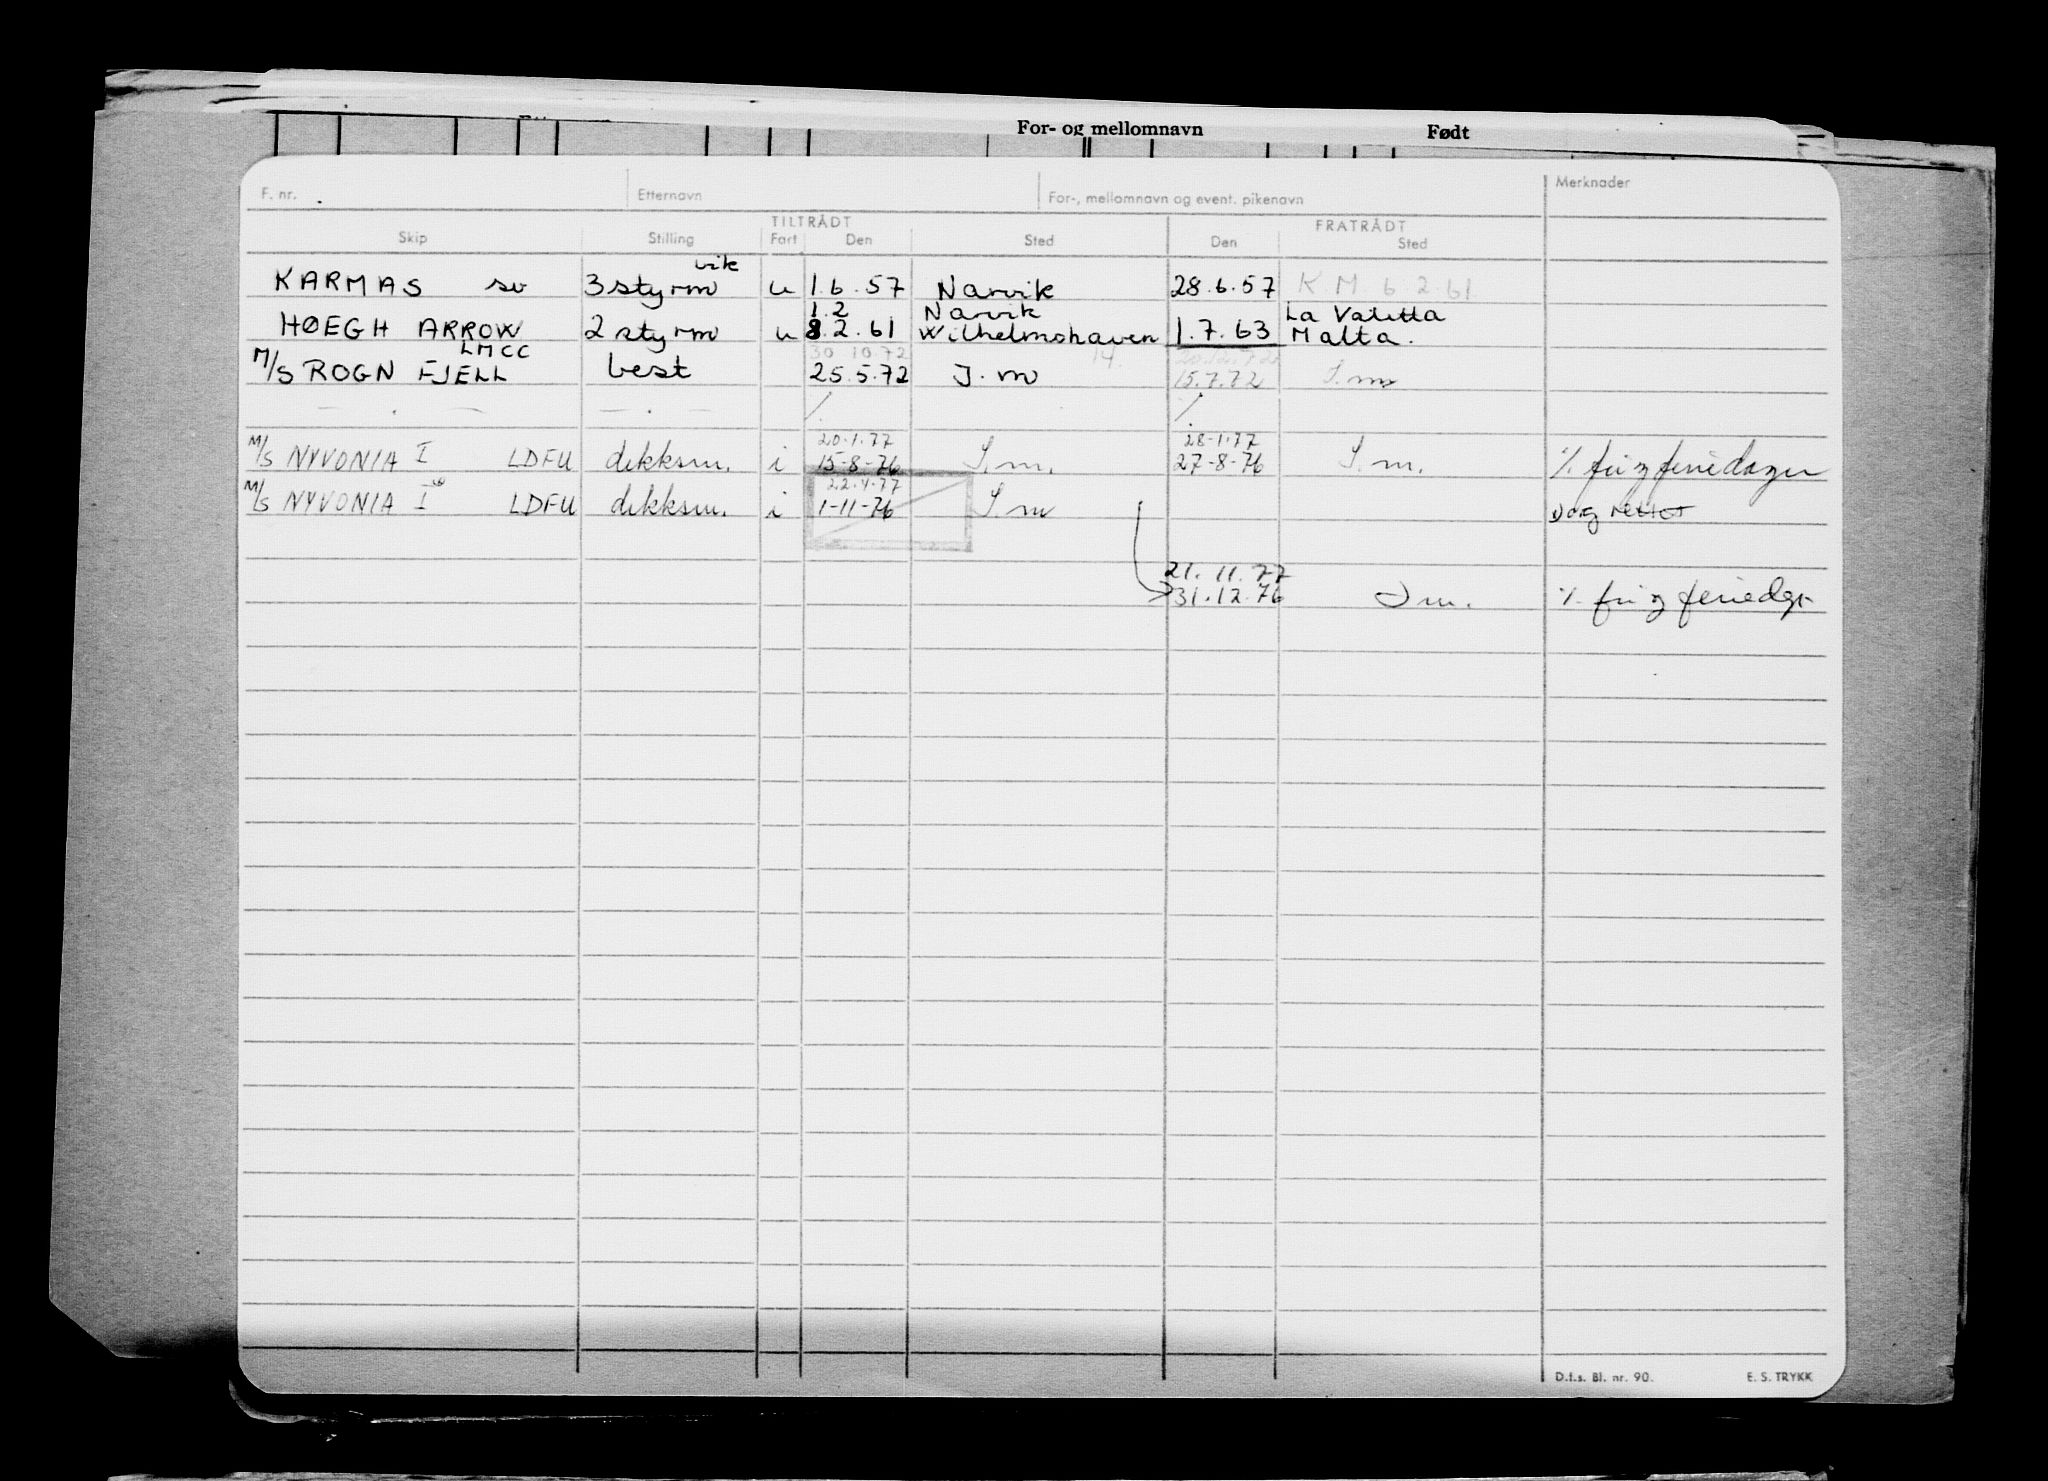 For- og mellomnavn Født
F. nr. Etternavn For-, mellomnavn og event. pikenavn Merknader
TILTRÅDT FRATRÅDT
Skip Stilling Fart Den Sted Den Sted
vik
KARMAS sv 3 styrm u 1.6.57 Narvik 28.6.57 K M 6 2 61
1.2 Narvik La Valetta
HØEGH ARROW 2 styrm u 8.2.61 Wilhelmshaven 1.7.63 Malta.
LMCC 30 10.72 14.
M/S ROGN FJELL best 25.5.72 I.m 15.7.72 I.m
— . — — . —
20.1.77 28-1.77
M/S NYVONIA I LDFU dekksm. i 15-8-76 I.m. 27-8-76 I.m. % fri og feriedager
22.4.77
M/S NYVONIA I LDFU dekksm. i 1-11-76 I.m Dag rettet
21.11.77
31.12.76 I m. % fri og feriedgr
D.f.s. Bl. nr. 90. E. S. TRYKK